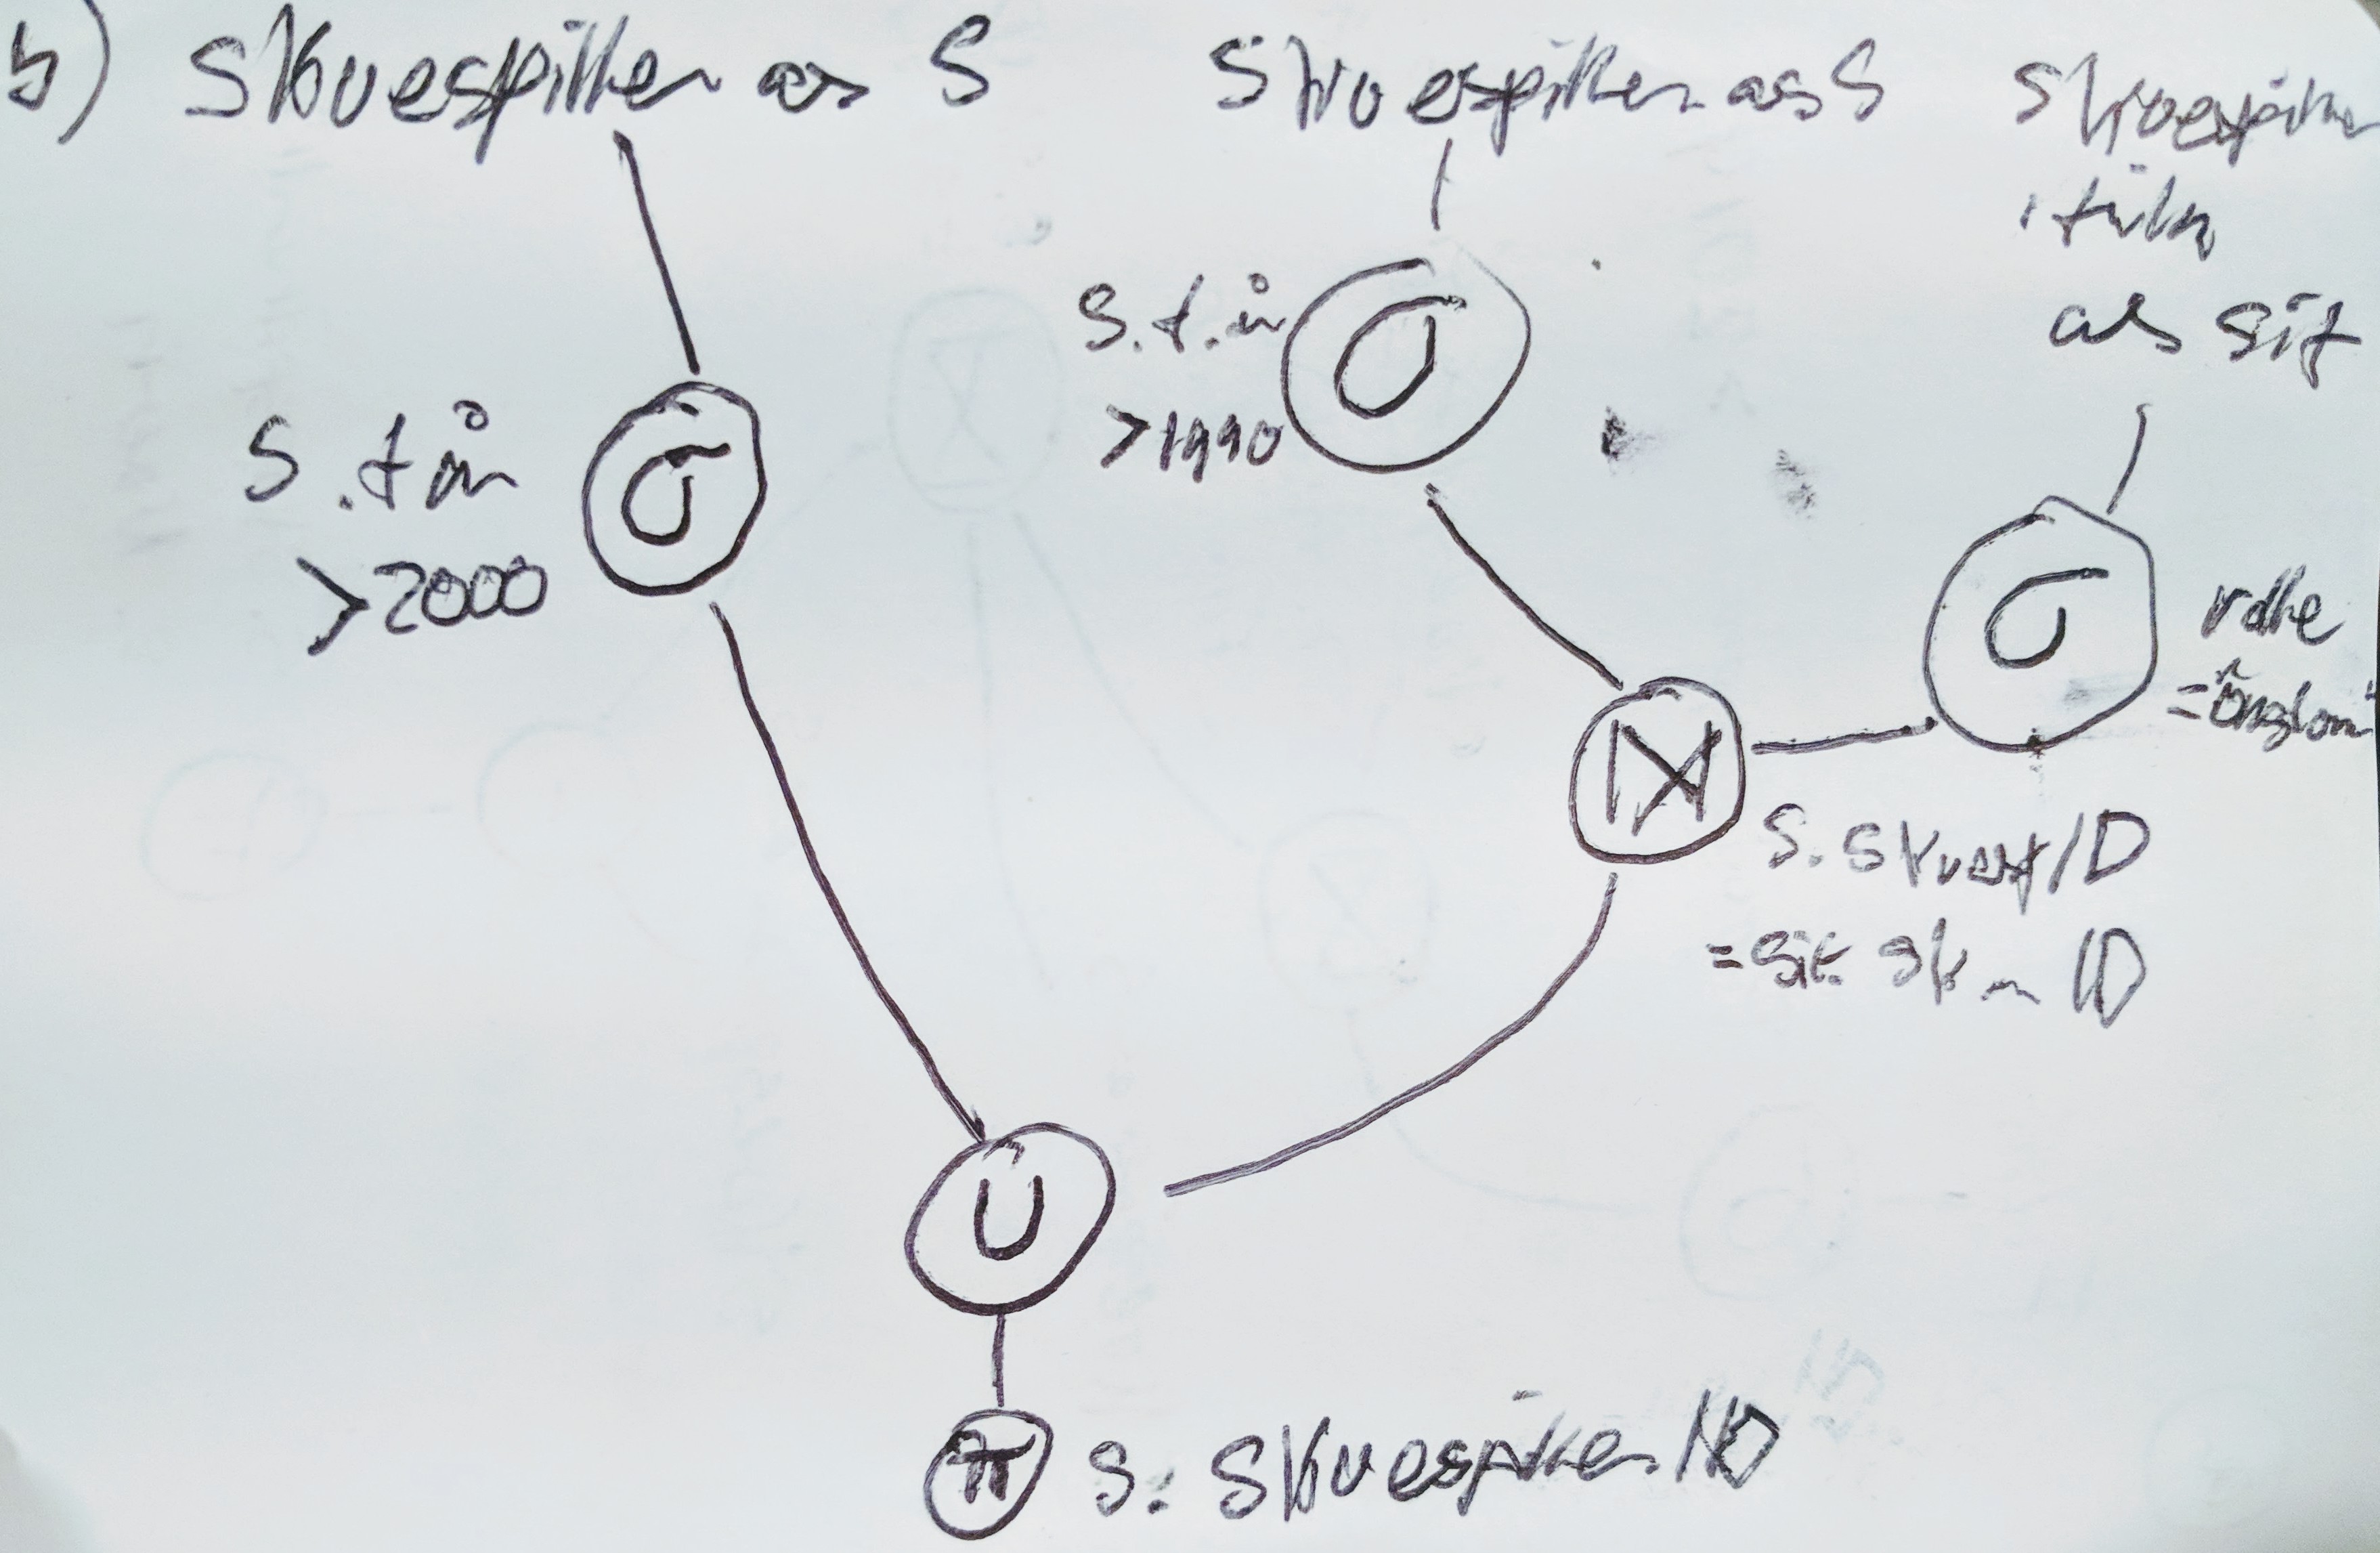 b) Skuespiller as S
Skuespiller as S
Skuespiller
i film
as sif
S.f.år
>1990
σ
S.får
>2000
σ
σ
rolle
=
⋈
S.skuespID
=sif. sk~ID
U
π S. SkuespillerID